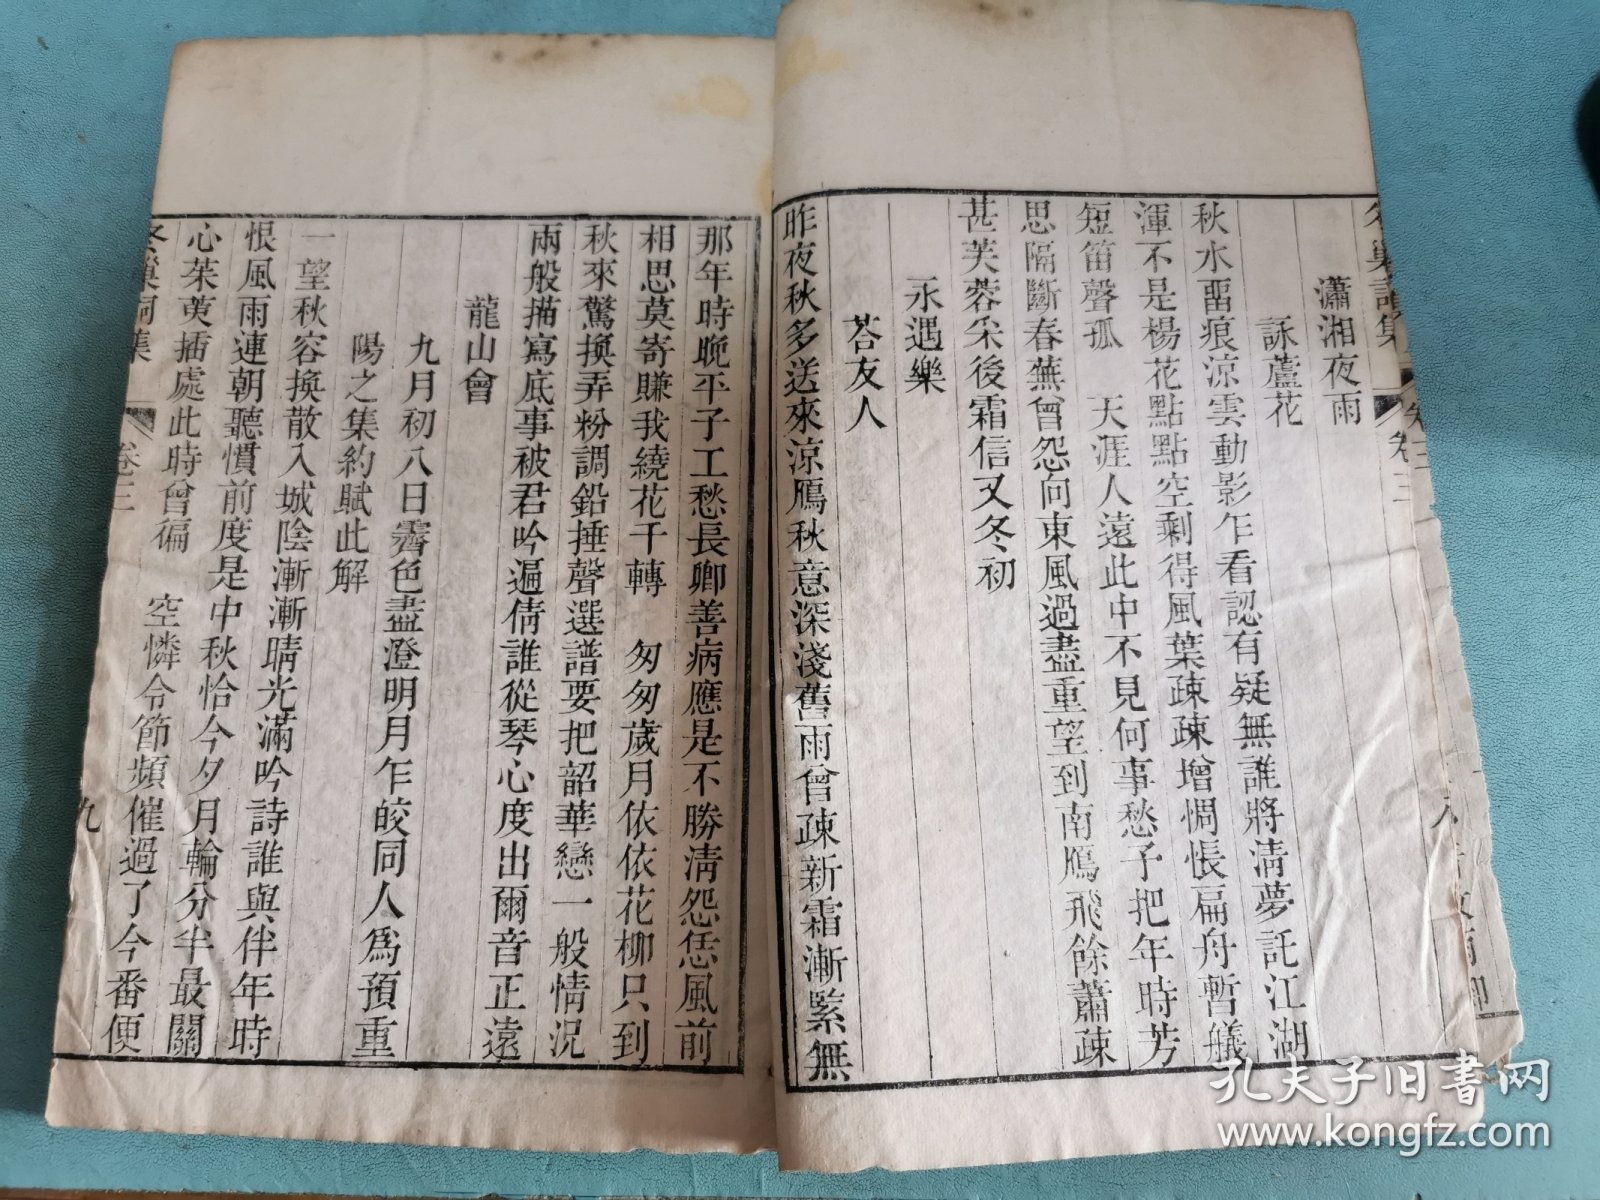 瀟湘夜雨
詠蘆花
秋水畱痕涼雲動影乍看認有疑無誰將淸夢託江湖
渾不是楊花點點空剩得風葉疎疎增惆悵扁舟暫艤
短笛聲孤　天涯人遠此中不見何事愁予把年時芳
思隔斷春蕪曾怨向東風過盡重望到南鴈飛餘蕭疎
甚芙蓉采後霜信又冬初
永遇樂
荅友人
昨夜秋多送來涼鴈秋意深淺舊雨曾疎新霜漸緊無
卷三
那年時晩平子工愁長卿善病應是不勝淸怨恁風前
相思莫寄賺我繞花千轉　匆匆歲月依依花柳只到
秋來驚換弄粉調鉛捶聲選譜要把韶華戀一般情況
兩般描寫底事被君吟遍倩誰從琴心度出爾音正遠
龍山會
九月初八日霽色盡澄明月乍皎同人爲預重
陽之集約賦此解
一望秋容換散入城陰漸漸晴光滿吟詩誰與伴年時
恨風雨連朝聽慣前度是中秋恰今夕月輪分半最關
心茱萸插處此時曾徧　空憐令節頻催過了今番便
冬巢詞集
卷三
九
孔夫子旧書网
www.kongfz.com